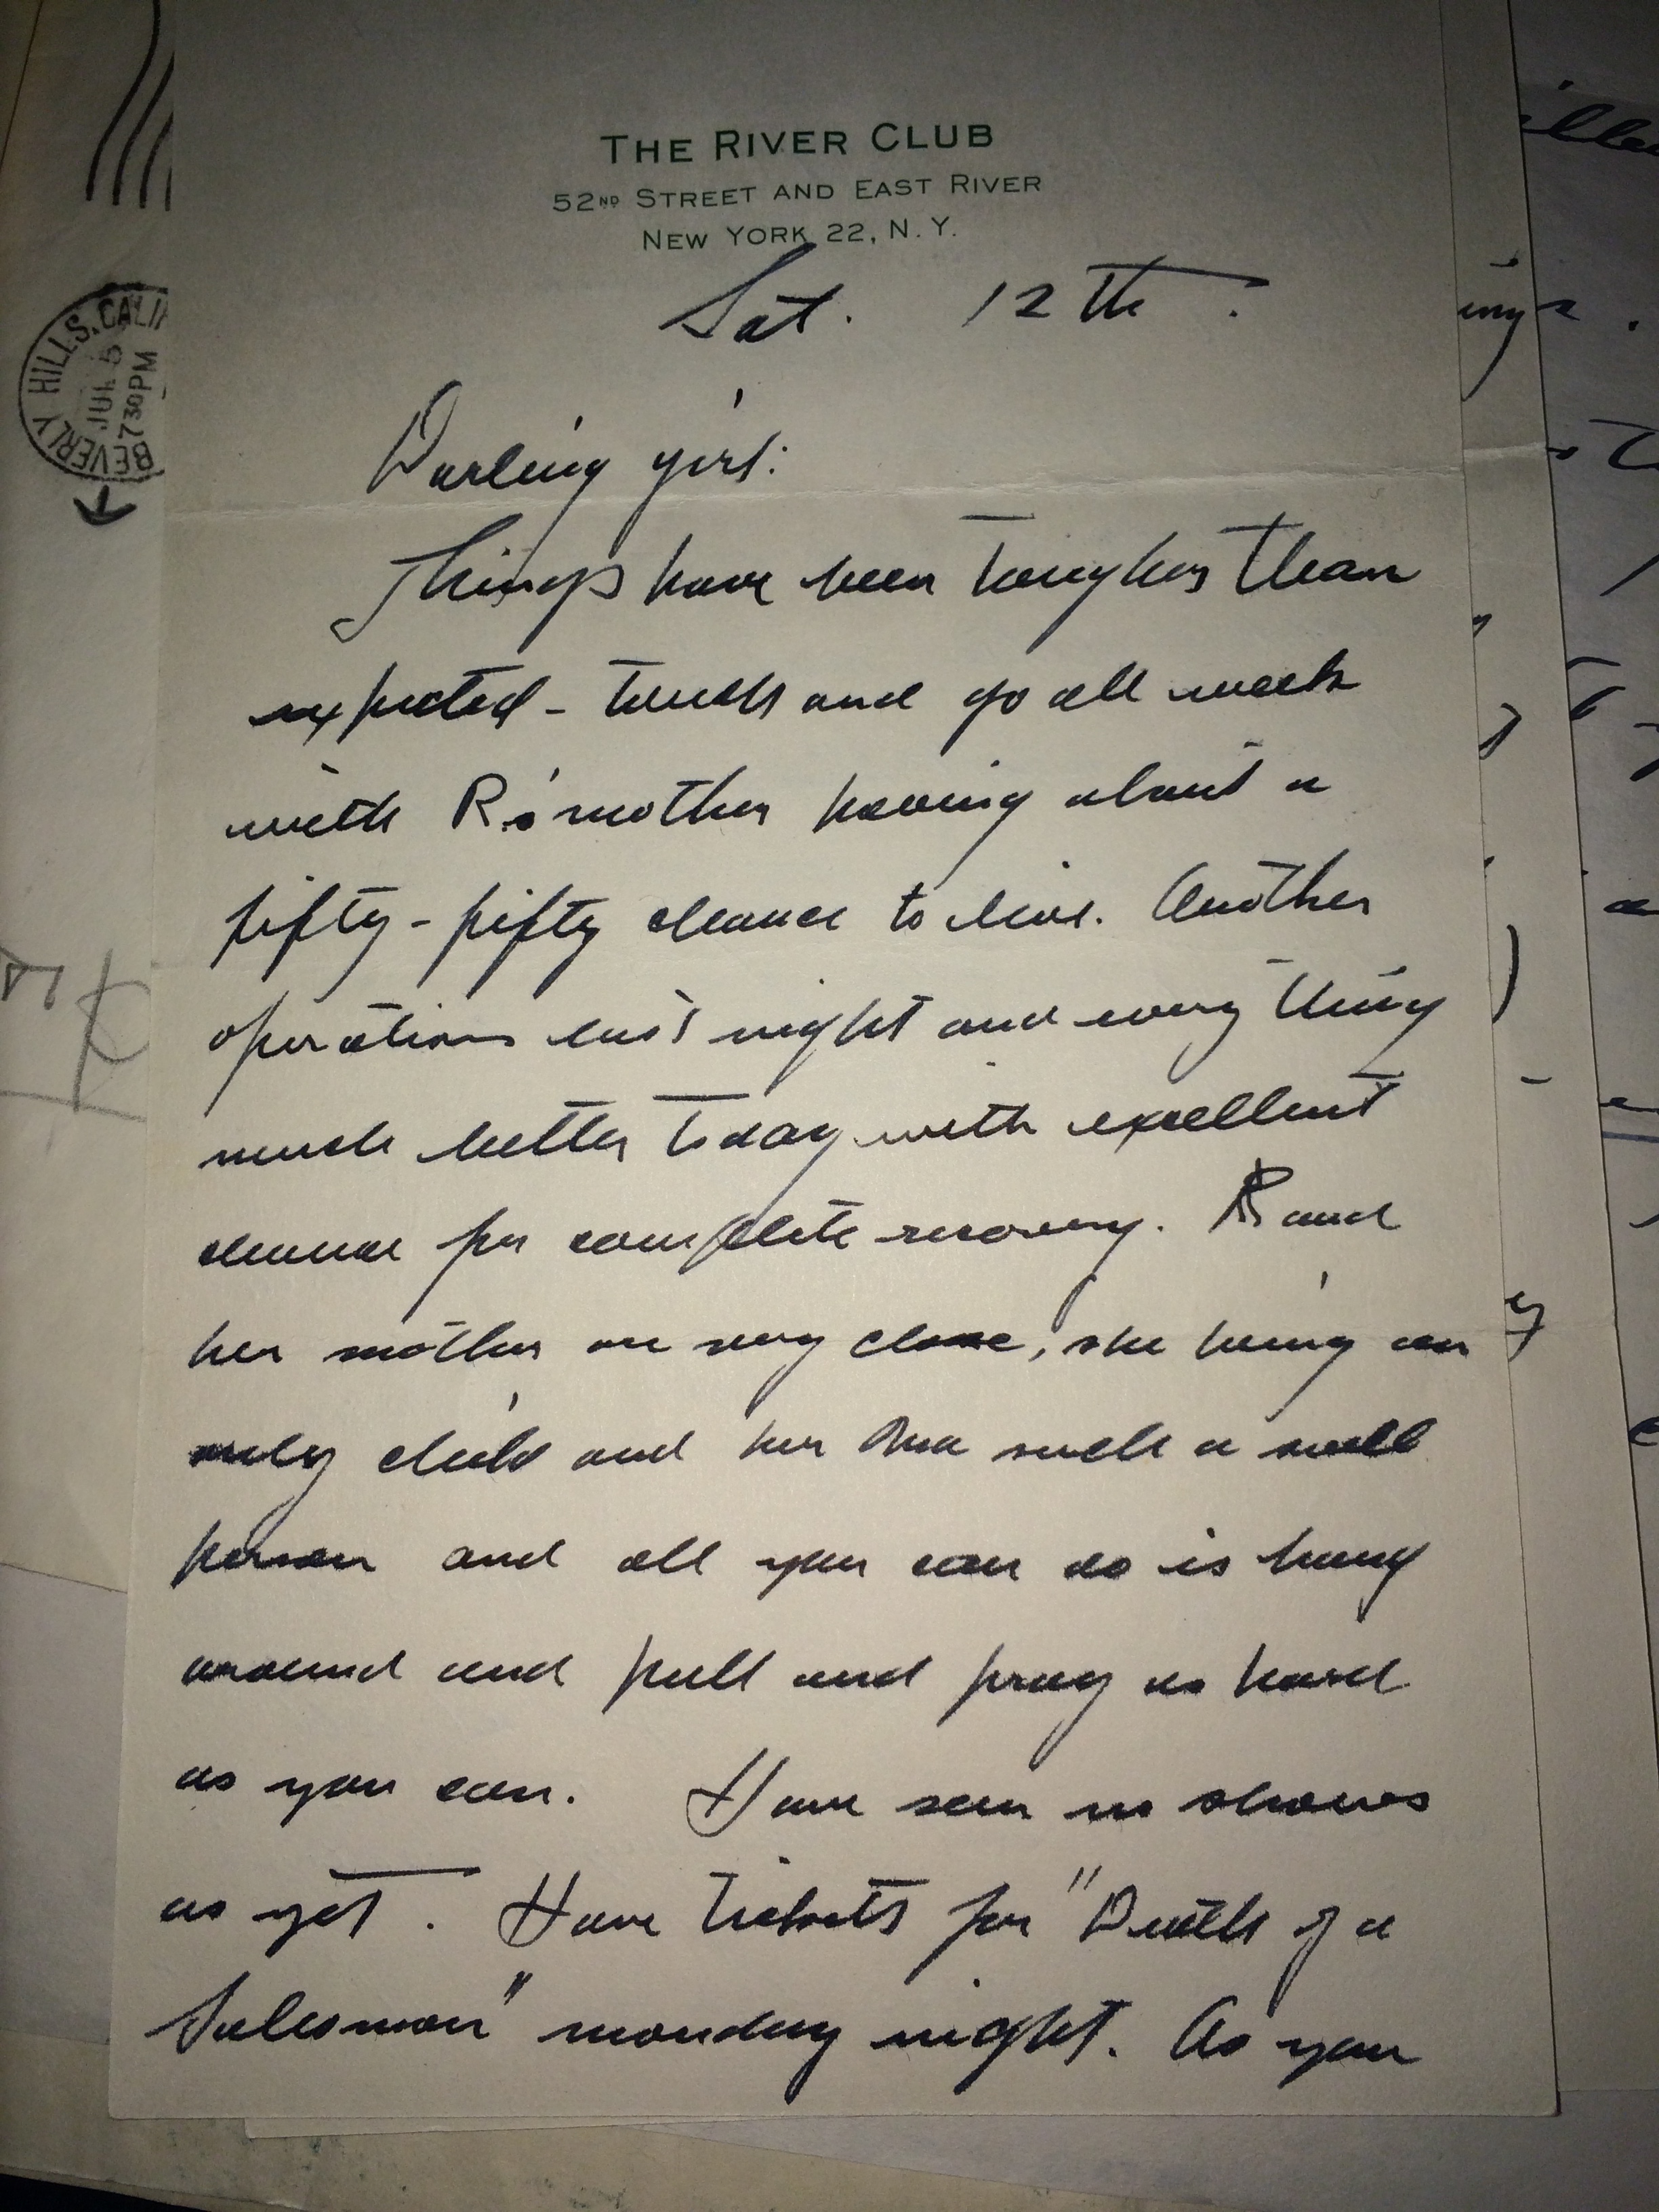 THE RIVER CLUB
52ND STREET AND EAST RIVER
NEW YORK 22, N.Y.
Sat. 12th.
Darling girl:
Things have been tougher than
expected - touch and go all week
with R.'s mother having about a
fifty-fifty chance to live. Another
operation last night and every thing
much better today with excellent
chance for complete recovery. R and
her mother are very close, she being an
only child and her Ma such a swell
person and all you can do is hang
around and pull and pray as hard
as you can. Have seen no shows
as yet. Have tickets for "Death of a
Salesman" monday night. As you
BEVERLY HILLS, CALIF
5
730PM